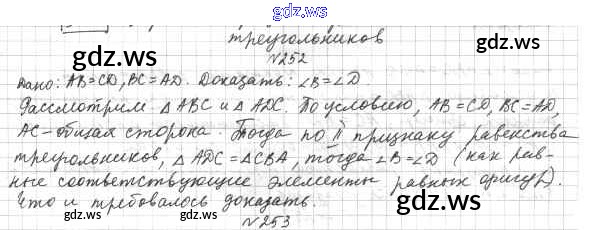 gdz.ws
треугольников
№252
Дано: AB=CD, BC=AD. Доказать: ∠B=∠D
Рассмотрим △ABC и △ADC. По условию, AB=CD, BC=AD,
AC-общая сторона. Тогда по II признаку равенства
треугольников, △ADC=△CBA, тогда ∠B=∠D (как рав-
ные соответствующие элементы равных фигур).
Что и требовалось доказать.
№253
gdz.ws
gdz.ws
gdz.ws
gdz.ws
gdz.ws
gdz.ws